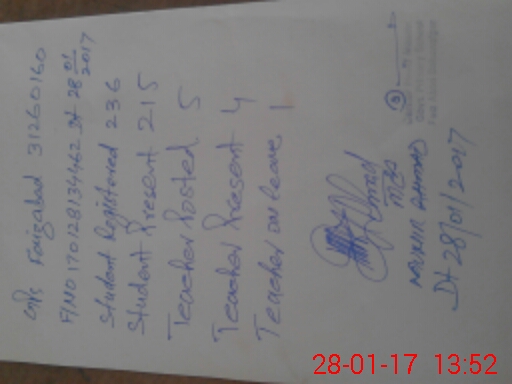 GPS Faizabad 31260160
F/NO 170128134462 Dt 28/01/2017
Student Registered 236
Student Present 215
Teacher Posted 5
Teacher Present 4
Teacher on leave 1
MUNIR AHMAD
Dt 28/01/2017
28-01-17 13:52